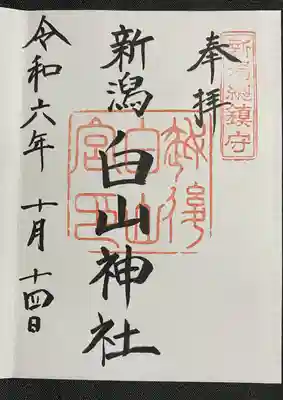 新潟総鎮守
奉拝
新潟白山神社
越後
白山
宮印
令和六年十月十四日